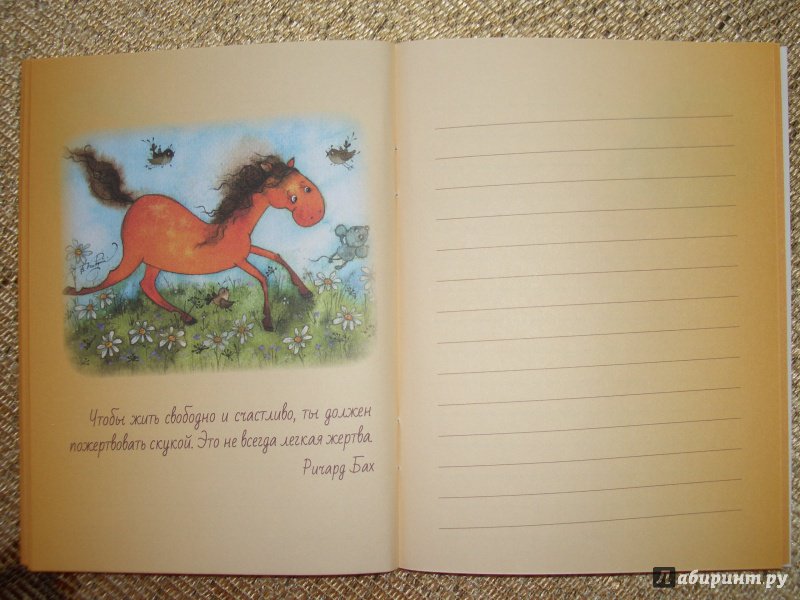 Чтобы жить свободно и счастливо, ты должен
пожертвовать скукой. Это не всегда легкая жертва.
Ричард Бах
Лабиринт.ру